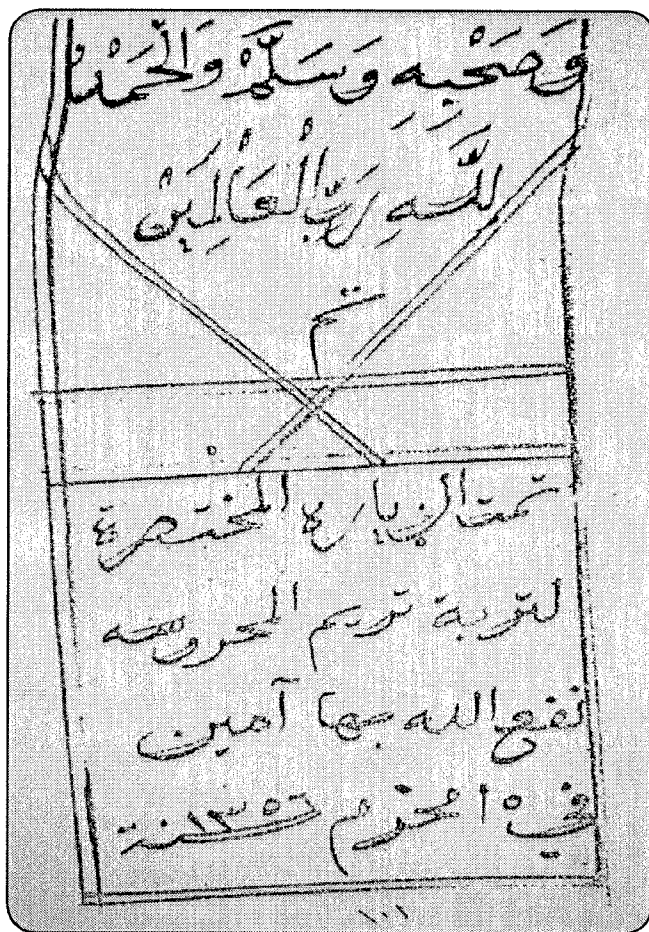 وَصَحْبِهِ وَسَلَّمْ وَالْحَمْدُ
لِلَّهِ رَبِّ الْعَالَمِيْنَ
تم
تمت الزيارة المختصرة
لتربة تريم المحروسه
نفع الله بها آمين
في ١٥ محرم سنة ١٣٥٦
١٠١